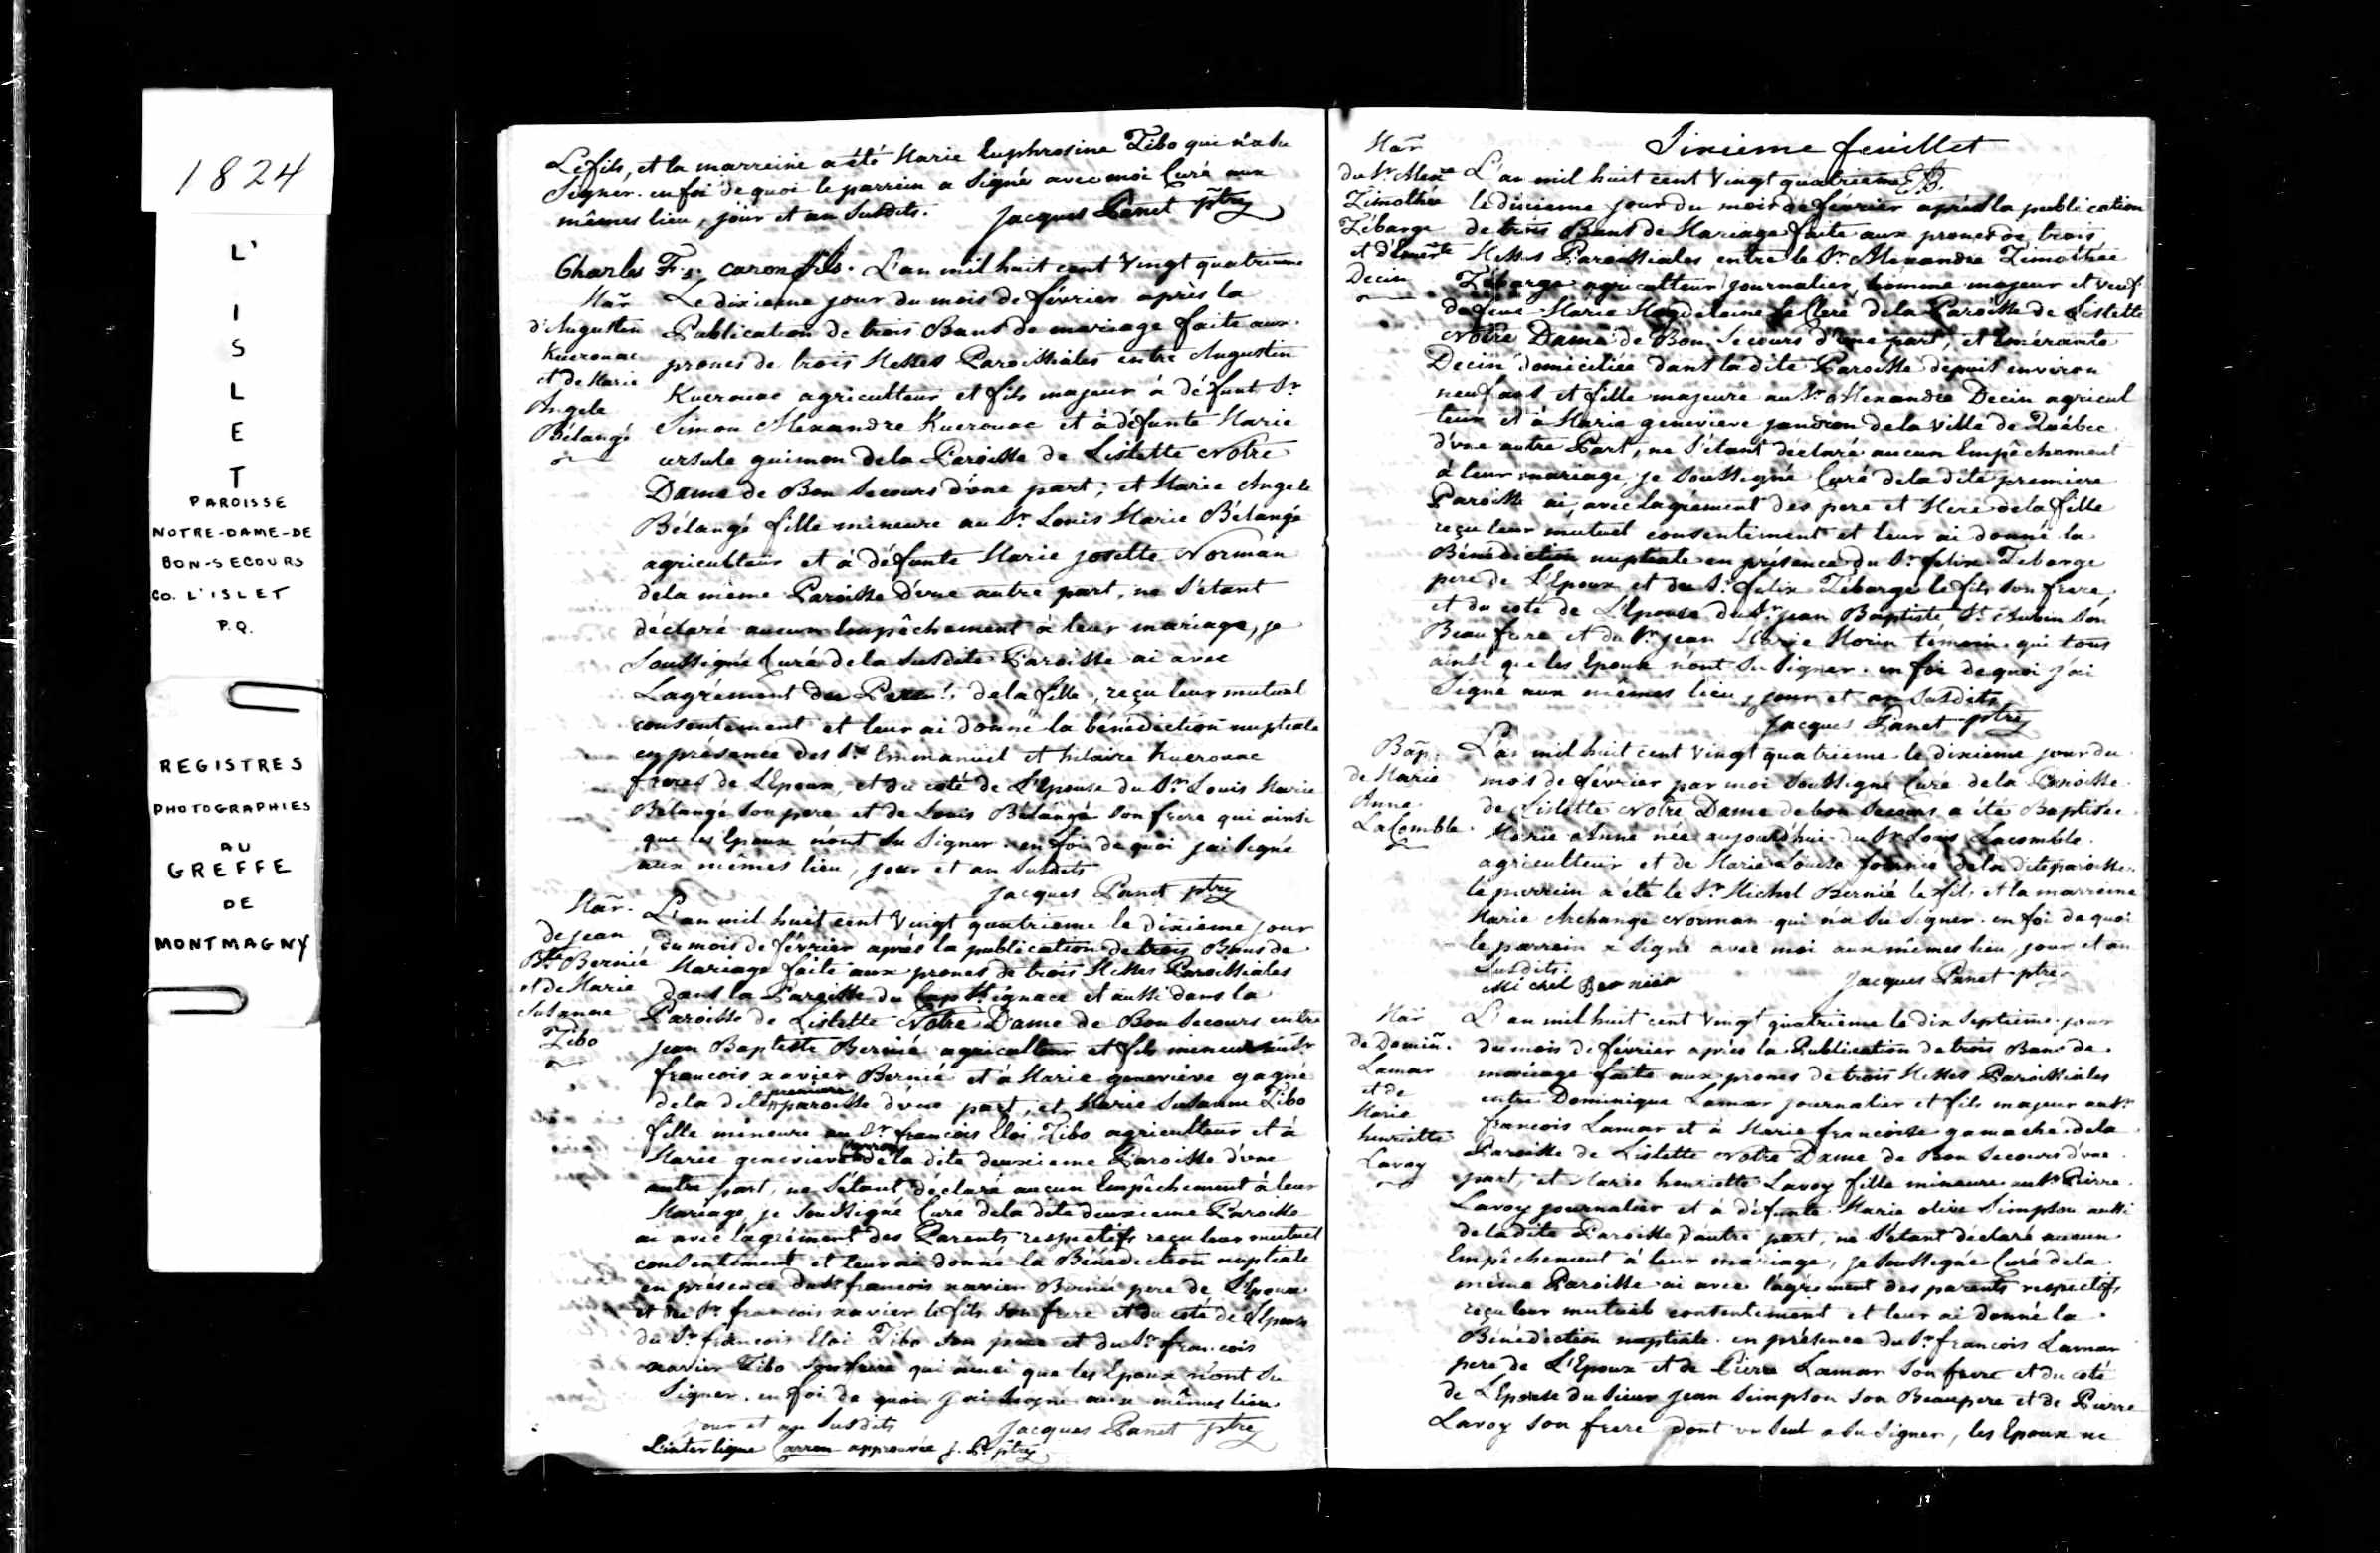 1824
L'
I
S
L
E
T
PAROISSE
NOTRE-DAME-DE
BON-SECOURS
CO. L'ISLET
P.Q.
REGISTRES
PHOTOGRAPHIES
AU
GREFFE
DE
MONTMAGNY
Le fils, et la marreine a été Marie Euphrosine Tibo qui n'a su
Signer. en foi de quoi le parrein a Signé avec moi Curé aux
mêmes lieu, jour et an Susdits. Jacques Panet ptre
Charles F. s. caron fils. L'an mil huit cent Vingt quatrieme
Mar Le dixieme jour du mois de février après la
d'Augustin Publication de trois Bans de mariage faite aux
Kuerouac prones de trois Messes Paroissiales entre Augustin
et de Marie Kuerouac agriculteur et fils majeur à défunt Sr
Angele Simon Alexandre Kuerouac et à défunte Marie
Bélangé ursule guimon de la Paroisse de Lislette Notre
Dame de Bon Secours d'une part; et Marie Angele
Bélangé fille mineure au Sr Louis Marie Bélangé
agriculteur et à défunte Marie josette Norman
de la même Paroisse d'une autre part, ne S'étant
déclaré aucun Empêchement à leur mariage, je
Soussigné Curé de la Susdite Paroisse ai avec
L'agrément du Pere de la fille, reçu leur mutuel
consentement et leur ai donné la bénédiction nuptiale
en présence des Srs Emmanuel et hilaire Kuerouac
freres de L'Epoux, et du coté de L'Epouse du Sr Louis Marie
Bélangé Son pere et de Louis Bélangé Son frere qui ainsi
que les Epoux n'ont Su Signer. en foi de quoi j'ai Signé
aux mêmes lieu, jour et an Susdits
Jacques Panet ptre
Mar. L'an mil huit cent Vingt quatrieme le dixieme jour
de jean du mois de février après la publication de trois Bans de
Bte Bernié Mariage faite aux prones de trois Messes Paroissiales
et de Marie dans la Paroisse du Cap St ignace et aussi dans la
Susanne Paroisse de Lislette Notre Dame de Bon Secours entre
Tibo jean Baptiste Bernié agriculteur et fils mineur au Sr
francois xavier Bernié et à Marie geneviéve gagné
de la dite premiere paroisse d'une part, et Marie Susanne Tibo
fille mineure au Sr francois Eloi Tibo agriculteur et à
Marie genevieve Carron de la dite deuxieme Paroisse d'une
autre part, ne S'étant déclaré aucun Empêchement à leur
Mariage, je Soussigné Curé de la dite deuxieme Paroisse
ai avec l'agrément des Parents respectifs reçu leur mutuel
consentement et leur ai donné la Bénédiction nuptiale
en présence du Sr francois xavier Bernié pere de L'Epoux
et du Sr francois xavier le fils Son frere et du coté de L'Epouse
du Sr francois Eloi Tibo Son pere et du Sr francois
xavier Tibo Son frere qui ainsi que les Epoux n'ont Su
Signer. en foi de quoi j'ai Signé aux mêmes lieu
jour et an Susdits Jacques Panet ptre
L'interligne Carron approuvée j. Pt ptre
Sixieme feuillet
Mar
du Sr Alexe L'an mil huit cent Vingt quatrieme
Timothée le dixieme jour du mois de février après la publication
Tébarge de trois Bans de Mariage faite aux prones de trois
et d'Emérte Messes Paroissiales entre le Sr Alexandre Timothée
Decin Tébarge agriculteur journalier, homme majeur et veuf
de feue Marie Magdeleine Le Clerc de la Paroisse de Lislette
Notre Dame de Bon Secours d'une part, et Emérante
Decin domiciliée dans la dite Paroisse depuis environ
neuf ans et fille majeure au Sr Alexandre Decin agricul
teur et à Marie genevieve jandron de la ville de Québec
d'une autre Part, ne S'étant déclaré aucun Empêchement
à leur mariage, je Soussigné Curé de la dite premiere
Paroisse ai, avec l'agrément des pere et Mere de la fille
reçu leur mutuel consentement et leur ai donné la
Bénédiction nuptiale en présence du Sr felix Tebarge
pere de L'Epoux et du Sr felix Tébarge le fils Son frere,
et du coté de L'Epouse du Sr jean Baptiste St Aubin Son
Beau frere et du Sr jean Marie Morin témoin. qui tous
ainsi que les Epoux n'ont Su Signer. en foi de quoi j'ai
Signé aux mêmes lieu, jour et an Susdits
Jacques Panet ptre
Bap. L'an mil huit cent Vingt quatrieme le dixieme jour du
de Marie mois de février par moi Soussigné Curé de la Paroisse
Anne de Lislette Notre Dame de bon Secours a été Baptisée
LaComble Marie Anne née aujourd'hui du Sr Louis Lacomble
agriculteur et de Marie Louise fournié de la dite paroisse.
le parrein a été le Sr Michel Bernié le fils et la marreine
Marie Archange Norman qui n'a Su Signer. en foi de quoi
le parrein a Signé avec moi aux mêmes lieu, jour et an
Susdits.
Michel Bernier Jacques Panet ptre
Mar L'an mil huit cent Vingt quatrieme le dix Septieme jour
de Domin. du mois de février après la Publication de trois Bans de
Lamar mariage faite aux prones de trois Messes Paroissiales
et de entre Dominique Lamar journalier et fils majeur au Sr
Marie francois Lamar et à Marie francoise gamache de la
henriette Paroisse de Lislette Notre Dame de Bon Secours d'une
Lavoy part, et Marie henriette Lavoy fille mineure au Sr Pierre
Lavoy journalier et à défunte Marie olive Simpson aussi
de la dite Paroisse d'autre part, ne S'étant déclaré aucun
Empêchement à leur mariage, je Soussigné Curé de la
même Paroisse ai avec l'agrément des parents respectifs
reçu leur mutuel contentement et leur ai donné la
Bénédiction nuptiale. en présence du Sr francois Lamar
pere de L'Epoux et de Pierre Lamar Son frere et du coté
de L'Epouse du Sieur jean Simpson Son Beaupere et de Pierre
Lavoy Son frere dont un Seul a Su Signer, les Epoux ne